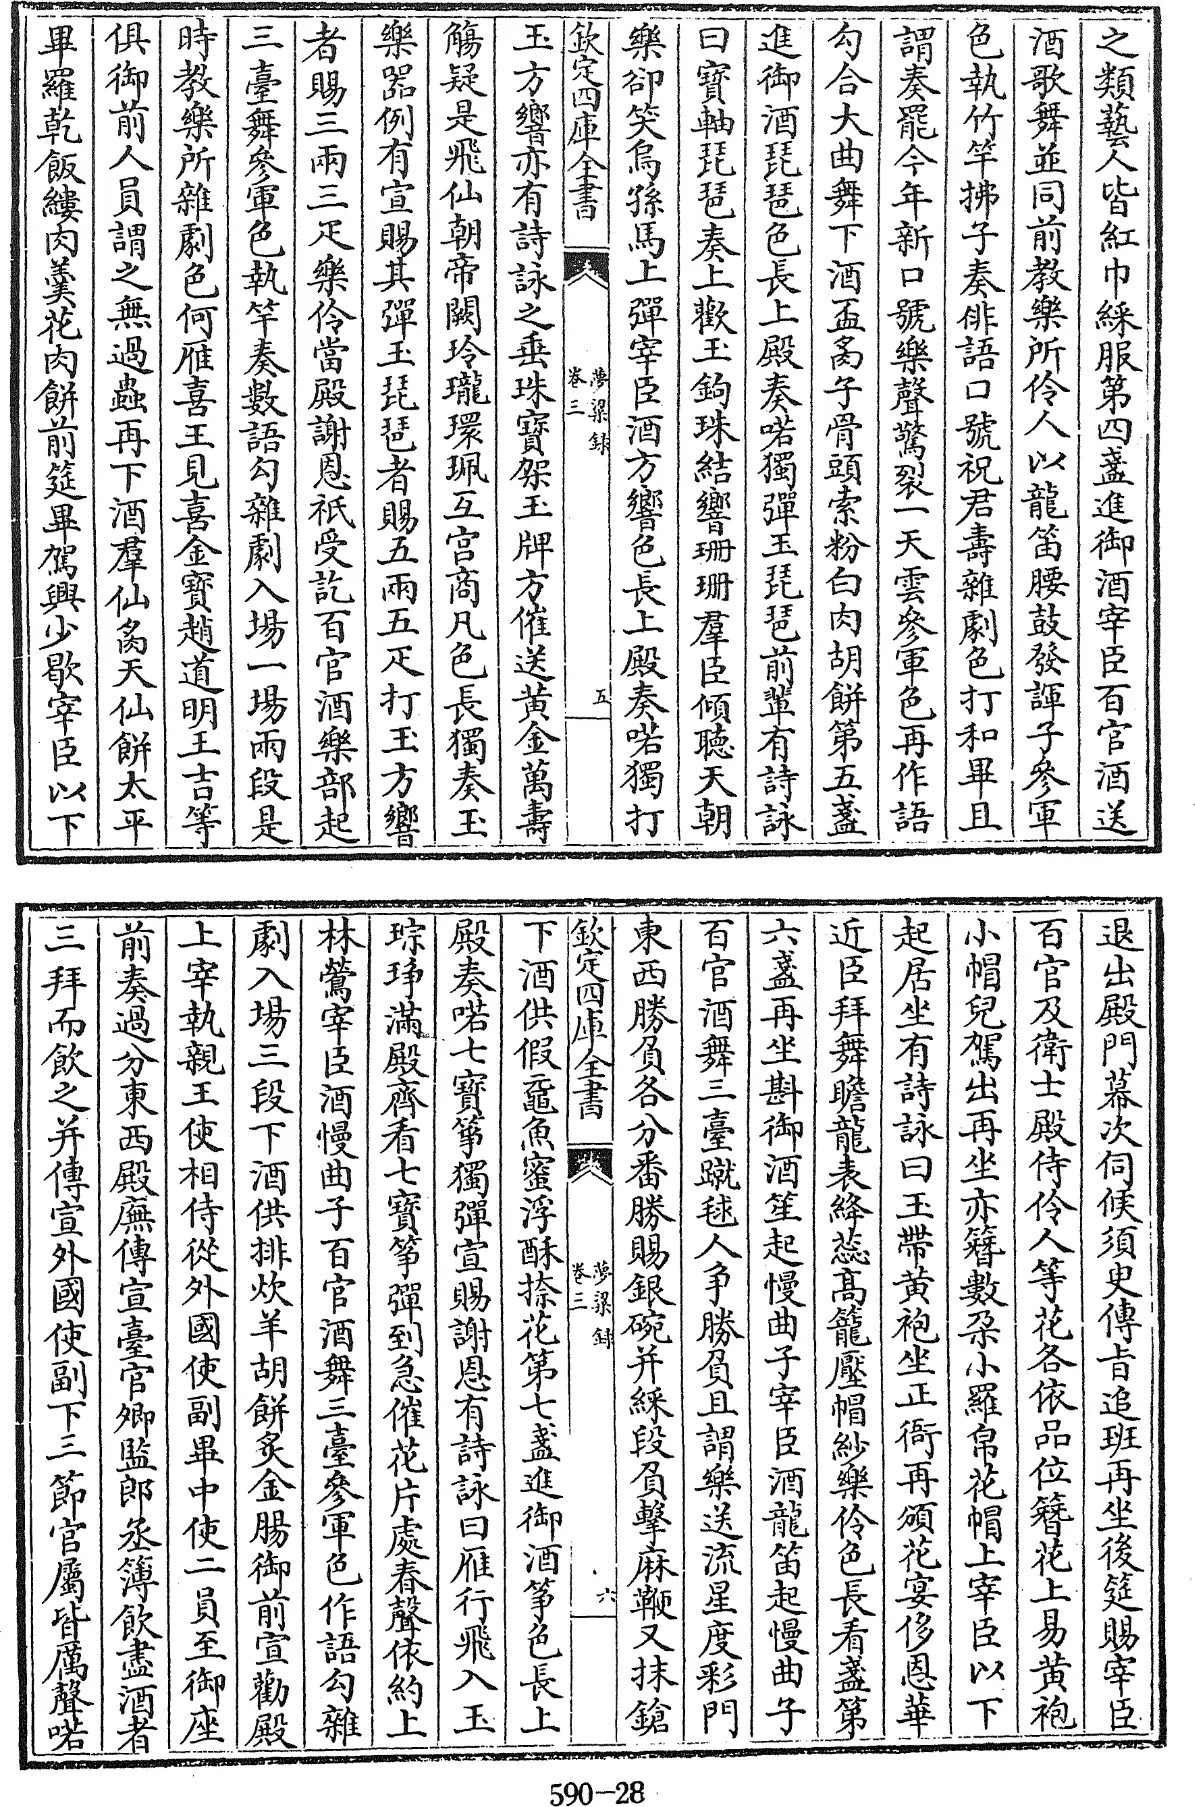 之類藝人皆紅巾綵服第四盞進御酒宰臣百官酒送
酒歌舞並同前教樂所伶人以龍笛腰鼓發諢子參軍
色執竹竿拂子奏俳語口號祝君壽雜劇色打和畢且
謂奏罷今年新口號樂聲驚裂一天雲參軍色再作語
勾合大曲舞下酒盃禼子骨頭索粉白肉胡餅第五盞
進御酒琵琶色長上殿奏喏獨彈玉琵琶前輩有詩詠
曰寶軸琵琶奏上歡玉鉤珠結響珊珊羣臣傾聽天朝
樂卻笑烏孫馬上彈宰臣酒方響色長上殿奏喏獨打
欽定四庫全書
夢粱錄
卷三
五
玉方響亦有詩詠之垂珠寶架玉牌方催送黄金萬壽
觴疑是飛仙朝帝闕玲瓏環珮互宫商凡色長獨奏玉
樂器例有宣賜其彈玉琵琶者賜五兩五疋打玉方響
者賜三兩三疋樂伶當殿謝恩祇受訖百官酒樂部起
三臺舞參軍色執竿奏數語勾雜劇入場一場兩段是
時教樂所雜劇色何雁喜王見喜金寶趙道明王吉等
俱御前人員謂之無過蟲再下酒羣仙禼天仙餅太平
畢羅乾飯縷肉羮花肉餅前筵畢駕興少歇宰臣以下
退出殿門幕次伺候須史傳㫖追班再坐後筵賜宰臣
百官及衛士殿侍伶人等花各依品位簪花上易黄袍
小帽兒駕出再坐亦簪數朶小羅帛花帽上宰臣以下
起居坐有詩詠曰玉帶黄袍坐正衙再頒花宴侈恩華
近臣拜舞瞻龍表絳蕊髙籠壓帽紗樂伶色長看盞第
六盞再坐斟御酒笙起慢曲子宰臣酒龍笛起慢曲子
百官酒舞三臺蹴毬人争勝負且謂樂送流星度彩門
東西勝負各分番勝賜銀碗并綵段負擊麻鞭又抹鎗
欽定四庫全書
夢粱錄
卷三
六
下酒供假黿魚蜜浮酥捺花第七盞進御酒筝色長上
殿奏喏七寶筝獨彈宣賜謝恩有詩詠曰雁行飛入玉
琮琤滿殿齊看七寶筝彈到急催花片處春聲依約上
林鶯宰臣酒慢曲子百官酒舞三臺參軍色作語勾雜
劇入場三段下酒供排炊羊胡餅炙金腸御前宣勸殿
上宰執親王使相侍從外國使副畢中使二員至御座
前奏過分東西殿廡傳宣臺官卿監郎丞簿飲盡酒者
三拜而飲之并傳宣外國使副下三節官屬皆厲聲喏
590-28